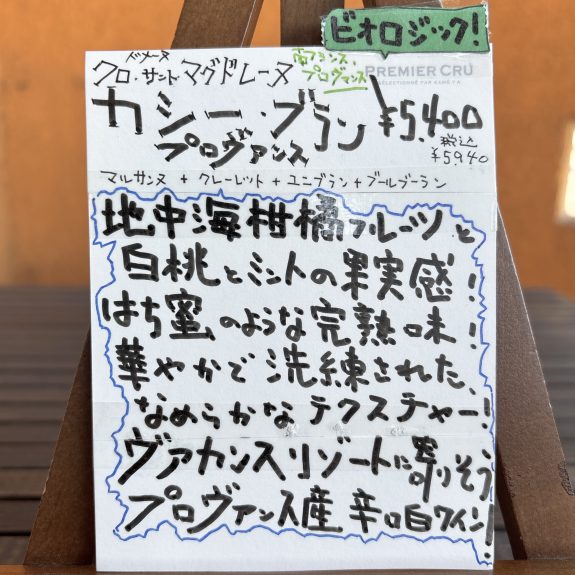 ビオロジック!
ドメーヌ
クロ・サント・マグドレーヌ
南フランス、
プロヴァンス
PREMIER CRU
SÉLECTIONNÉ PAR KAMÉYA
カシー・ブラン ¥5,400
プロヴァンス
税込
¥5940
マルサンヌ + クレーレット + ユニブラン + ブールブーラン
地中海柑橘フルーツと
白桃とミントの果実感!
はち蜜のような完熟味!
華やかで洗練された、
なめらかなテクスチャー!
ヴァカンスリゾートに寄りそう
プロヴァンス産辛口白ワイン!